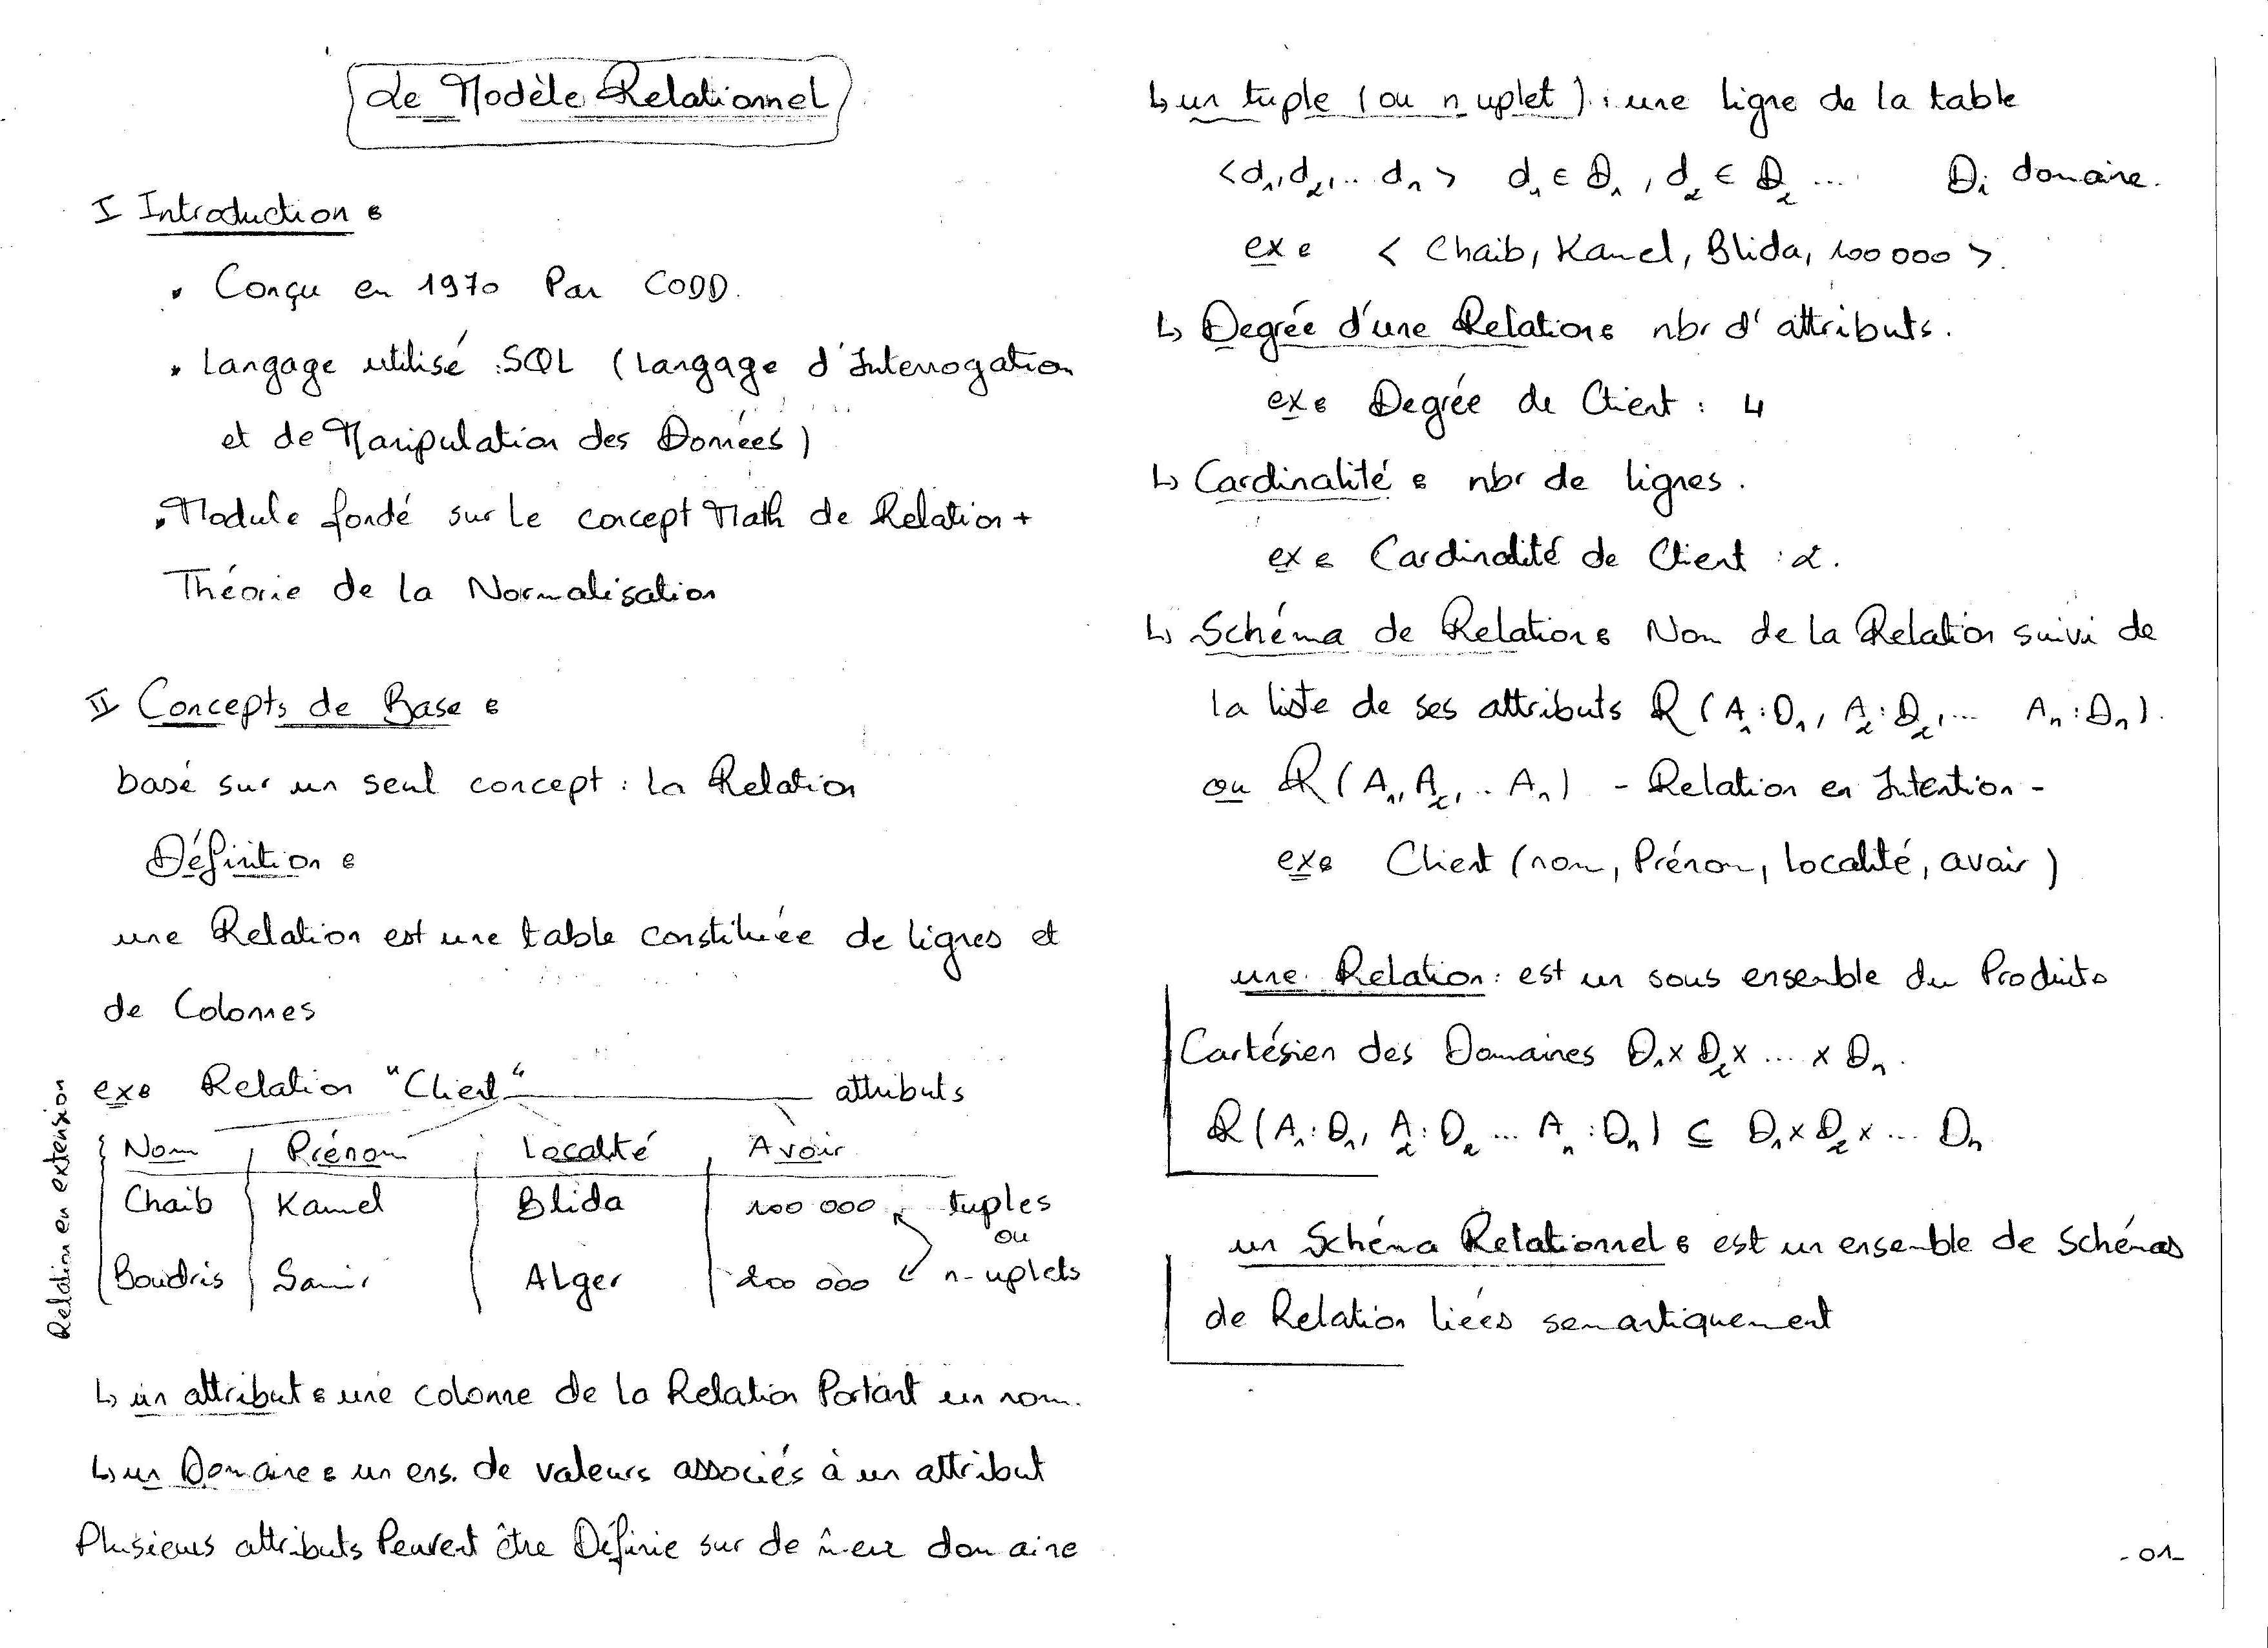 Le Modèle Relationnel
I Introduction :
• Conçu en 1970 Par CODD.
• Langage utilisé : SQL (Langage d'Interrogation
et de Manipulation des Données)
• Module fondé sur le concept Math de Relation +
Théorie de la Normalisation
II Concepts de Base :
basé sur un seul concept : la Relation
Définition :
une Relation est une table constituée de lignes et
de Colonnes
ex : Relation "Client" attributs
Relation en extension
Nom Prénom Localité Avoir
Chaib Kamel Blida 100 000 tuples
ou
Boudris Samir Alger 200 000 n-uplets
↳ un attribut : une colonne de la Relation Portant un nom.
↳ un Domaine : un ens. de valeurs associés à un attribut
Plusieurs attributs Peuvent être Définie sur de même domaine
↳ un tuple (ou n uplet) : une ligne de la table
<d1, d2, .. dn> d1 ∈ D1, d2 ∈ D2 ... Di domaine.
ex : < Chaib, Kamel, Blida, 100 000 >.
↳ Degrée d'une Relation : nbr d'attributs.
ex : Degrée de Client : 4
↳ Cardinalité : nbr de lignes.
ex : Cardinalité de Client : 2.
↳ Schéma de Relation : Nom de la Relation suivi de
la liste de ses attributs R (A1 : D1, A2 : D2, ... An : Dn).
ou R (A1, A2, .. An) - Relation en Intention -
ex : Client (nom, Prénom, Localité, avoir)
une Relation : est un sous ensemble du Produits
Cartésien des Domaines D1 x D2 x ... x Dn.
R (A1 : D1, A2 : D2 ... An : Dn) ⊆ D1 x D2 x ... Dn
un Schéma Relationnel : est un ensemble de Schémas
de Relation liées semantiquement
- 01 -